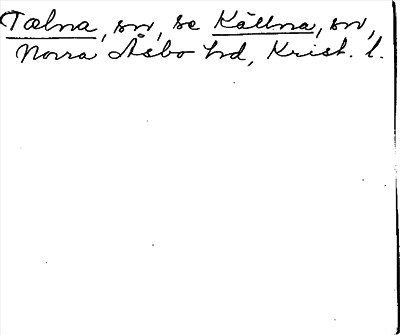 Tælna, sn, se Källna, sn,
Norra Åsbo hd, Krist. l.